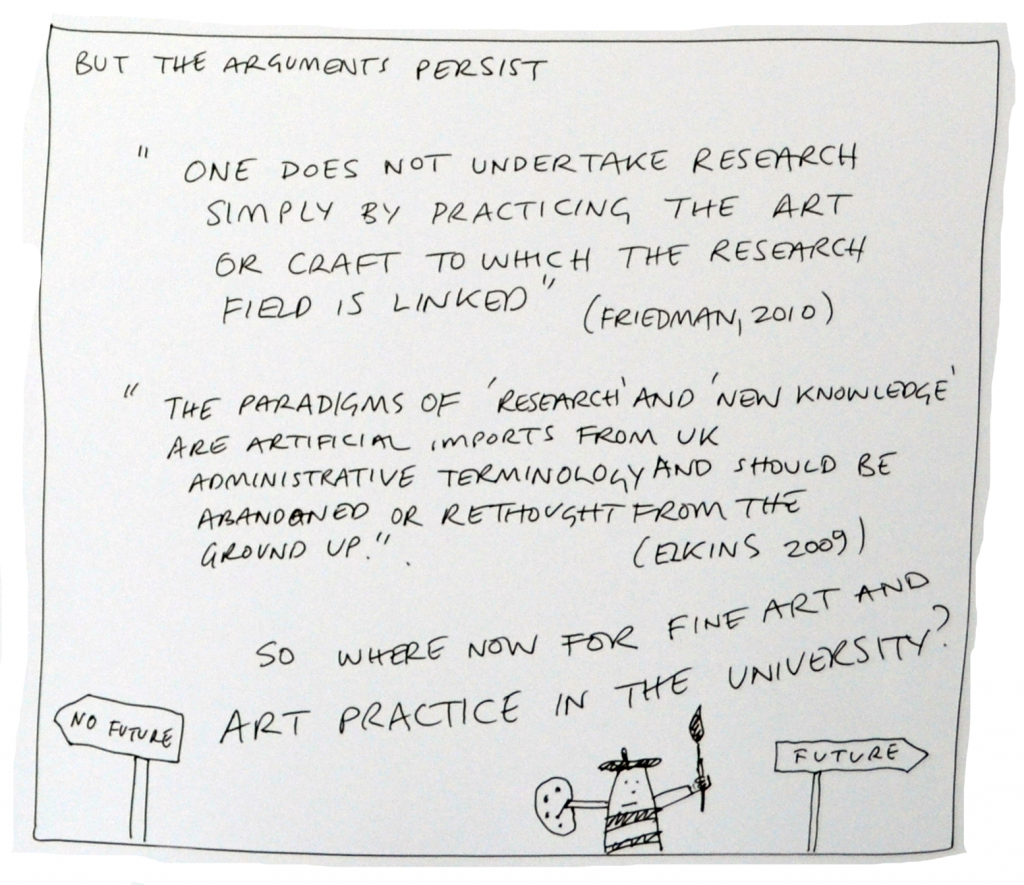 BUT THE ARGUMENTS PERSIST
" ONE DOES NOT UNDERTAKE RESEARCH
SIMPLY BY PRACTICING THE ART
OR CRAFT TO WHICH THE RESEARCH
FIELD IS LINKED" (FRIEDMAN, 2010)
" THE PARADIGMS OF 'RESEARCH' AND 'NEW KNOWLEDGE'
ARE ARTIFICIAL IMPORTS FROM UK
ADMINISTRATIVE TERMINOLOGY AND SHOULD BE
ABANDONED OR RETHOUGHT FROM THE
GROUND UP." (ELKINS 2009)
SO WHERE NOW FOR FINE ART AND
ART PRACTICE IN THE UNIVERSITY?
NO FUTURE
FUTURE